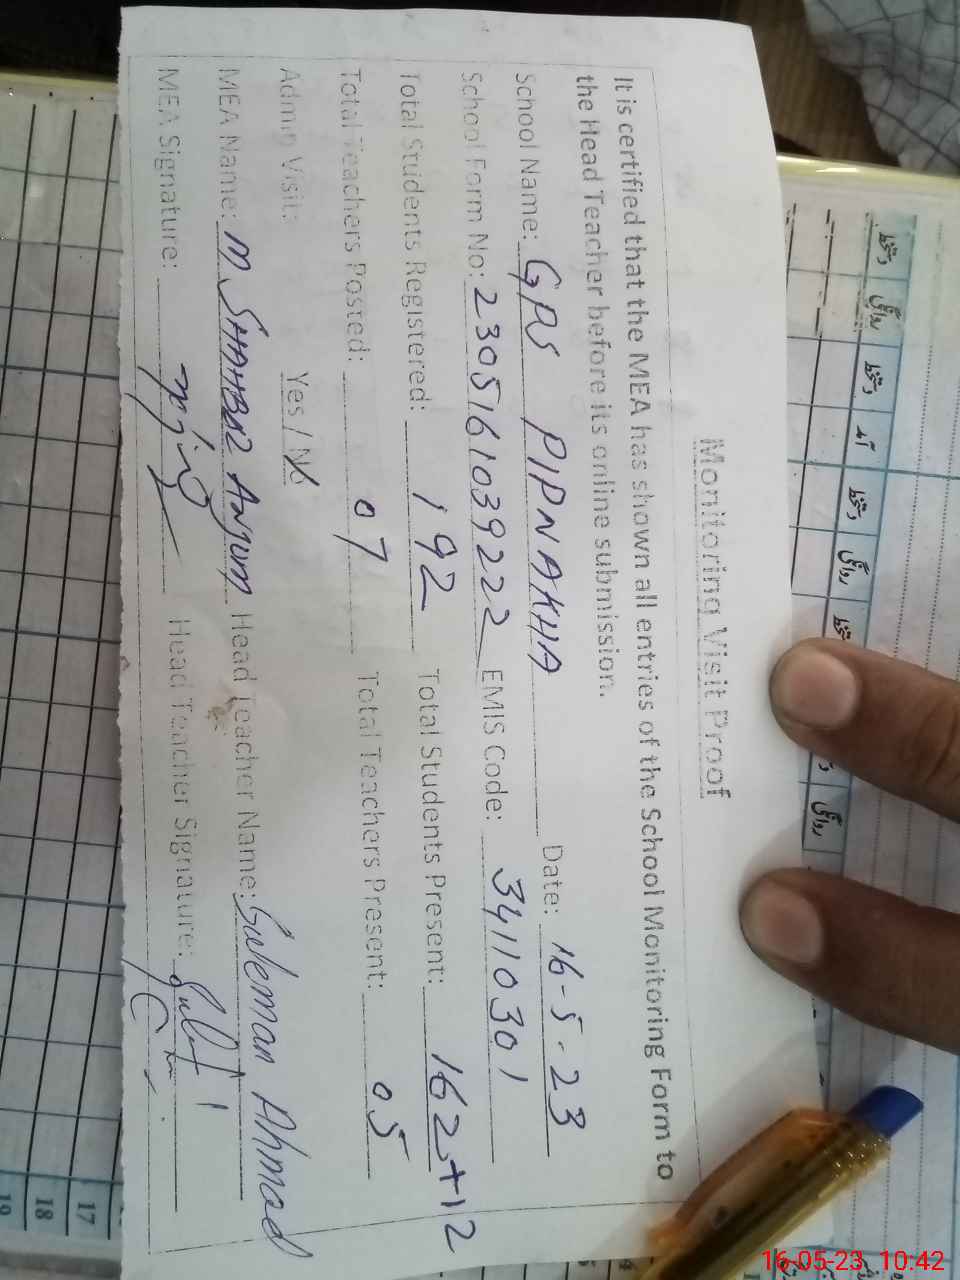 Monitoring Visit Proof
It is certified that the MEA has shown all entries of the School Monitoring Form to
the Head Teacher before its online submission.
School Name: GPS PIPNAKHA Date: 16-5-23
School Form No: 2305161039222 EMIS Code: 34110301
Total Students Registered: 192 Total Students Present: 162+12
Total Teachers Posted: 07 Total Teachers Present: 05
Admin Visit: Yes / No
MEA Name: M SHAHBAZ ANJUM Head Teacher Name: Suleman Ahmad
MEA Signature: Head Teacher Signature:
دستخط
روانگی
دستخط
آمد
دستخط
روانگی
دستخط
روانگی
17
18
19
16-05-23 10:42